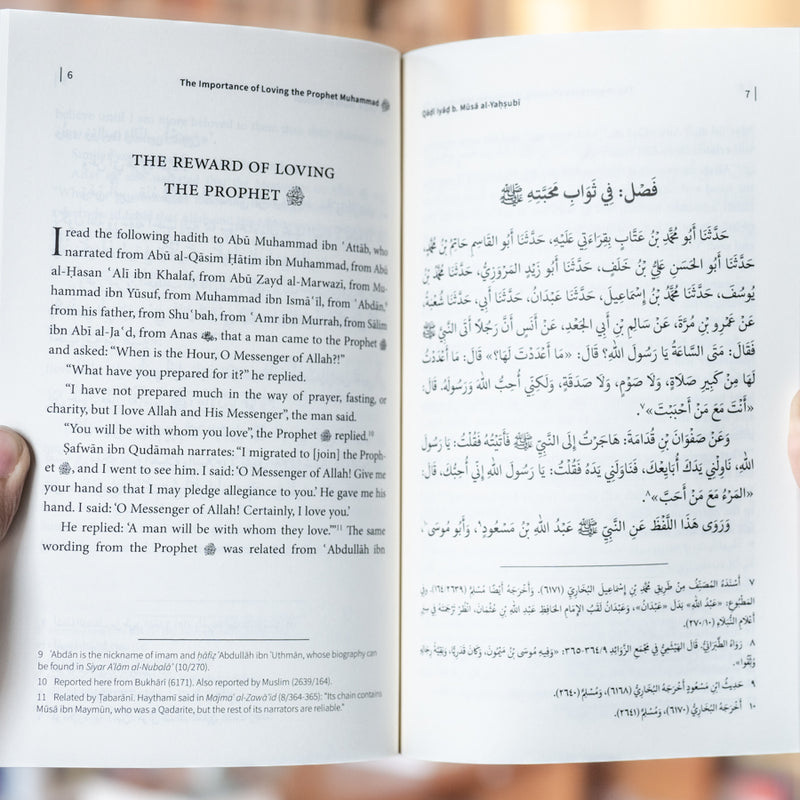 6
The Importance of Loving the Prophet Muhammad ﷺ
THE REWARD OF LOVING
THE PROPHET ﷺ
I read the following hadith to Abū Muhammad ibn ʿAttāb, who
narrated from Abū al-Qāsim Ḥātim ibn Muhammad, from Abū
al-Ḥasan ʿAlī ibn Khalaf, from Abū Zayd al-Marwazī, from Mu-
hammad ibn Yūsuf, from Muhammad ibn Ismāʿīl, from ʿAbdān,⁹
from his father, from Shuʿbah, from ʿAmr ibn Murrah, from Sālim
ibn Abī al-Jaʿd, from Anas, that a man came to the Prophet ﷺ
and asked: “When is the Hour, O Messenger of Allah?!”
“What have you prepared for it?” he replied.
“I have not prepared much in the way of prayer, fasting, or
charity, but I love Allah and His Messenger”, the man said.
“You will be with whom you love”, the Prophet ﷺ replied.¹⁰
Ṣafwān ibn Qudāmah narrates: “I migrated to [join] the Proph-
et ﷺ, and I went to see him. I said: ‘O Messenger of Allah! Give me
your hand so that I may pledge allegiance to you.’ He gave me his
hand. I said: ‘O Messenger of Allah! Certainly, I love you.’
He replied: ‘A man will be with whom they love.’”¹¹ The same
wording from the Prophet ﷺ was related from ʿAbdullāh ibn
9 ʿAbdān is the nickname of imam and ḥāfiẓ ʿAbdullāh ibn ʿUthmān, whose biography can
be found in Siyar Aʿlām al-Nubalāʾ (10/270).
10 Reported here from Bukhārī (6171). Also reported by Muslim (2639/164).
11 Related by Ṭabarānī. Haythamī said in Majmaʿ al-Zawāʾid (8/364-365): “Its chain contains
Mūsā ibn Maymūn, who was a Qadarite, but the rest of its narrators are reliable.”
Qāḍī Iyāḍ b. Mūsā al-Yaḥṣubī
7
فَصْل: فِي ثَوَابِ مَحَبَّتِهِ ﷺ
حَدَّثَنَا أَبُو مُحَمَّدِ بْنُ عَتَّابٍ بِقِرَاءَتِي عَلَيْهِ، حَدَّثَنَا أَبُو القَاسِمِ حَاتِمُ بْنُ مُحَمَّدٍ،
حَدَّثَنَا أَبُو الحَسَنِ عَلِيُّ بْنُ خَلَفٍ، حَدَّثَنَا أَبُو زَيْدٍ المَرْوَزِيُّ، حَدَّثَنَا مُحَمَّدُ بْنُ
يُوسُفَ، حَدَّثَنَا مُحَمَّدُ بْنُ إِسْمَاعِيلَ، حَدَّثَنَا عَبْدَانُ، حَدَّثَنَا أَبِي، حَدَّثَنَا شُعْبَةُ،
عَنْ عَمْرِو بْنِ مُرَّةَ، عَنْ سَالِمِ بْنِ أَبِي الجَعْدِ، عَنْ أَنَسٍ أَنَّ رَجُلًا أَتَى النَّبِيَّ ﷺ
فَقَالَ: مَتَى السَّاعَةُ يَا رَسُولَ اللهِ؟ قَالَ: «مَا أَعْدَدْتَ لَهَا؟» قَالَ: مَا أَعْدَدْتُ
لَهَا مِنْ كَبِيرِ صَلَاةٍ، وَلَا صَوْمٍ، وَلَا صَدَقَةٍ، وَلَكِنِّي أُحِبُّ اللهَ وَرَسُولَهُ. قَالَ:
«أَنْتَ مَعَ مَنْ أَحْبَبْتَ»٧.
وَعَنْ صَفْوَانَ بْنِ قُدَامَةَ: هَاجَرْتُ إِلَى النَّبِيِّ ﷺ فَأَتَيْتُهُ فَقُلْتُ: يَا رَسُولَ
اللهِ، نَاوِلْنِي يَدَكَ أُبَايِعْكَ، فَنَاوَلَنِي يَدَهُ فَقُلْتُ: يَا رَسُولَ اللهِ إِنِّي أُحِبُّكَ، قَالَ:
«المَرْءُ مَعَ مَنْ أَحَبَّ»٨.
وَرَوَى هَذَا اللَّفْظَ عَنِ النَّبِيِّ ﷺ عَبْدُ اللهِ بْنُ مَسْعُودٍ٩، وَأَبُو مُوسَى١٠،
٧ أَسْنَدَهُ المُصَنِّفُ مِنْ طَرِيقِ مُحَمَّدِ بْنِ إِسْمَاعِيلَ البُخَارِيِّ (٦١٧١). وَأَخْرَجَهُ أَيْضًا مُسْلِمٌ (١٦٤/٢٦٣٩). وَفِي
المَطْبُوعِ: «عَبْدُ اللهِ» بَدَلَ «عَبْدَانُ»، وَعَبْدَانُ لَقَبُ الإِمَامِ الحَافِظِ عَبْدِ اللهِ بْنِ عُثْمَانَ، انْظُرْ تَرْجَمَتَهُ فِي سِيَرِ
أَعْلَامِ النُّبَلَاءِ (٢٧٠/١٠).
٨ رَوَاهُ الطَّبَرَانِيُّ. قَالَ الهَيْثَمِيُّ فِي مَجْمَعِ الزَّوَائِدِ ٣٦٤/٩-٣٦٥: «وَفِيهِ مُوسَى بْنُ مَيْمُونٍ، وَكَانَ قَدَرِيًّا، وَبَقِيَّةُ رِجَالِهِ
وُثِّقُوا».
٩ حَدِيثُ ابْنِ مَسْعُودٍ أَخْرَجَهُ البُخَارِيُّ (٦١٦٨)، وَمُسْلِمٌ (٢٦٤٠).
١٠ أَخْرَجَهُ البُخَارِيُّ (٦١٧٠)، وَمُسْلِمٌ (٢٦٤١).